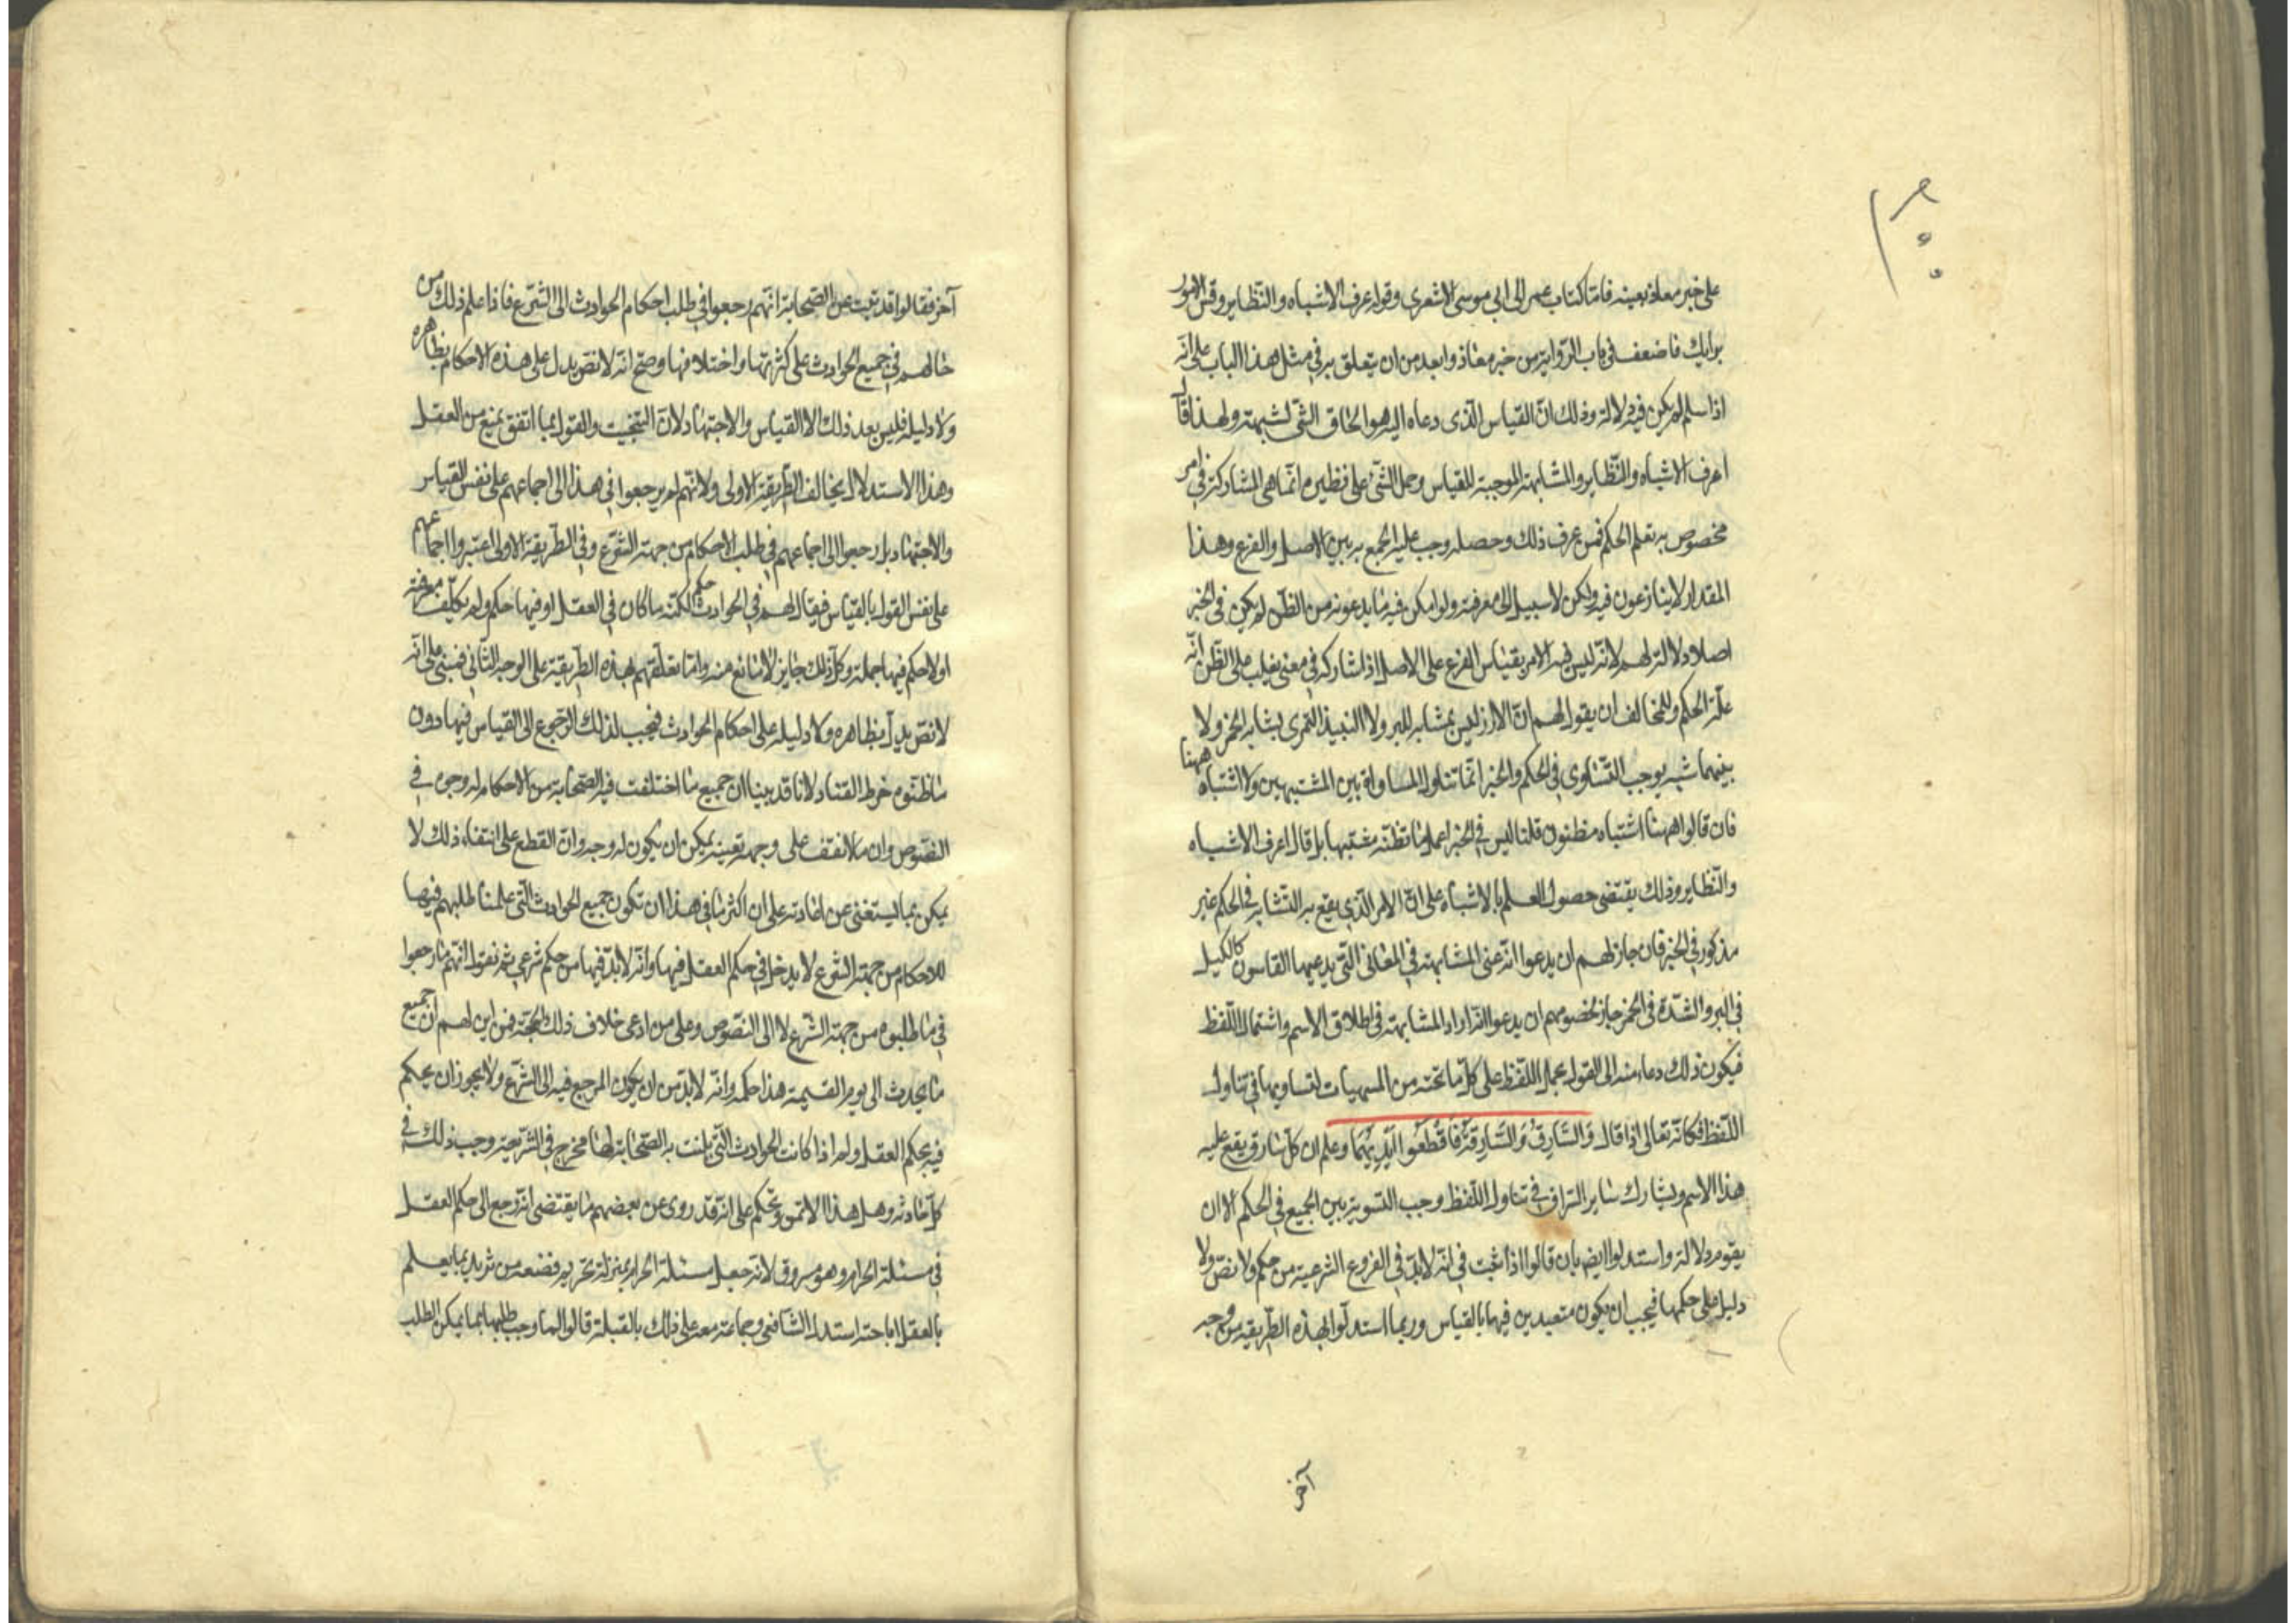 على خبر معاذ بعينه فاما كتاب عمر الى ابي موسى الاشعري وقوله اعرف الاشباه والنظاير وقس الامور
برايك فاضعف في باب الرواية من خبر معاذ وابعد من ان يتعلق به في مثل هذا الباب على انه
اذا سلم لم يكن فيه دلالة وذلك ان القياس الذي دعاه اليه هو الحاق الشئ لشبهته ولهذا قال
اعرف الاشباه والنظاير والمشابهة الموجبة للقياس وحمل الشئ على نظيره انما هي المشاركة في امر
مخصوص به تعلم الحكم فمن عرف ذلك وحصله وجب عليه الجمع به بين الاصل والفرع وهذا
المقدار لا ينازعون فيه ولكن لا سبيل الى معرفته ولو امكن فيه ما يدعونه من الظن لم يكن في الخبر
اصلا دلالة لهم لانه ليس فيه الامر بقياس الفرع على الاصل اذا شاركه في معنى يغلب على الظن انه
علة الحكم وللمخالف ان يقول لهم ان الارز ليس بمشابه للبر ولا النبيذ التمري يشابه الخمر ولا
بينهما شبه يوجب التساوي في الحكم والخبر انما تناول المساواة بين المشتبهين ولا اشتباه ههنا
فان قالوا ههنا اشتباه مظنون قلنا ليس في الخبر اعمل ما تظنه مشتبها بل قال اعرف الاشباه
والنظاير وذلك يقتضى حصول العلم بالاشباه على ان الامر الذي يقع به التشابه في الحكم غير
مذكور في الخبر فان جاز لهم ان يدعوا انه عنى المشابهة في المعاني التي يدعيها القايسون كالكيل
في البر والشدة في الخمر جاز لخصومهم ان يدعوا انه اراد المشابهة في اطلاق الاسم واشتمال اللفظ
فيكون ذلك دعاء منه الى القول بحمل اللفظ على كل ما تحته من المسميات لتساويها في تناول
اللفظ فكانه تعالى اذا قال وَالسَّارِقُ وَالسَّارِقَةُ فَاقْطَعُوا أَيْدِيَهُمَا وعلم ان كل سارق يقع عليه
هذا الاسم ويشارك ساير السراق في تناول اللفظ وجب التسوية بين الجميع في الحكم الا ان
يقوم دلالة واستدلوا ايض بان قالوا اذا ثبت في انه لابد في الفروع الشرعية من حكم ولا نص ولا
دليل على حكمها فيجب ان يكون متعبدين فيها بالقياس وربما استدلوا بهذه الطريقة من وجه
آخر
آخر فقالوا قد ثبت عن الصحابة انهم رجعوا في طلب احكام الحوادث الى الشرع فاذا علم ذلك من
حالهم في جميع الحوادث على كثرتها واختلافها وصح انه لا نص يدل على هذه الاحكام بظاهره
ولا دليله فليس بعد ذلك الا القياس والاجتهاد لان التبخيت والقول بما اتفق يمنع من العقل
وهذا الاستدلال يخالف الطريقة الاولى ولانهم لم يرجعوا في هذا الى اجماعهم على نفس القياس
والاجتهاد بل رجعوا الى اجماعهم في طلب الاحكام من جهة الشرع وفي الطريقة الاولى اعتبروا اجماعهم
على نفس القول بالقياس فيقال لهم في الحوادث حكم لكنه ما كان في العقل او فيها حكم ولم نكلف معرفته
او لا حكم فيها جملة وكل ذلك جايز لا مانع منه واما تعلقهم بهذه الطريقة على الوجه الثاني فمبنى على انه
لا نص يدل بظاهره ولا دليله على احكام الحوادث فيجب لذلك الرجوع الى القياس فيها ودون
ما ظنوه خرط القتاد لانا قد بينا ان جميع ما اختلفت فيه الصحابة من الاحكام له وجوه في
النصوص وان ما لا نقف على وجهه بعينه يمكن ان يكون له وجه وان القطع على انتفاء ذلك لا
يمكن بما يستغنى عن اعادته على ان اكثر ما في هذا ان تكون جميع الحوادث التي علمنا طلبهم فيها
للاحكام من جهة الشرع لا يدخل في حكم العقل فيها وانه لابد فيها من حكم شرعي ثم نقول انهم ما رجعوا
في ما طلبوه من جهة الشرع لا الى النصوص وعلى من ادعى خلاف ذلك الحجة فمن اين لهم ان جميع
ما يحدث الى يوم القيمة هذا حكمه وانه لابد من ان يكون المرجع فيه الى الشرع ولا يجوز ان يحكم
فيه بحكم العقل ولم اذا كانت الحوادث التي بلنت به الصحابة لها مخرج في الشريعة وجب ذلك في
كل حادثة وهل هذا الا تمن وتحكم على انه قد روى عن بعضهم ما يقتضى انه رجع الى حكم العقل
في مسئلة الحرام وهو مسروق لانه جعل مسئلة الحرام بمنزلة تحريم قصعة من ثريد بما يعلم
بالعقل اباحته استدل الشافعي وجماعة معه على ذلك بالقبلة قالوا لما وجب طلبها بما يمكن الطلب